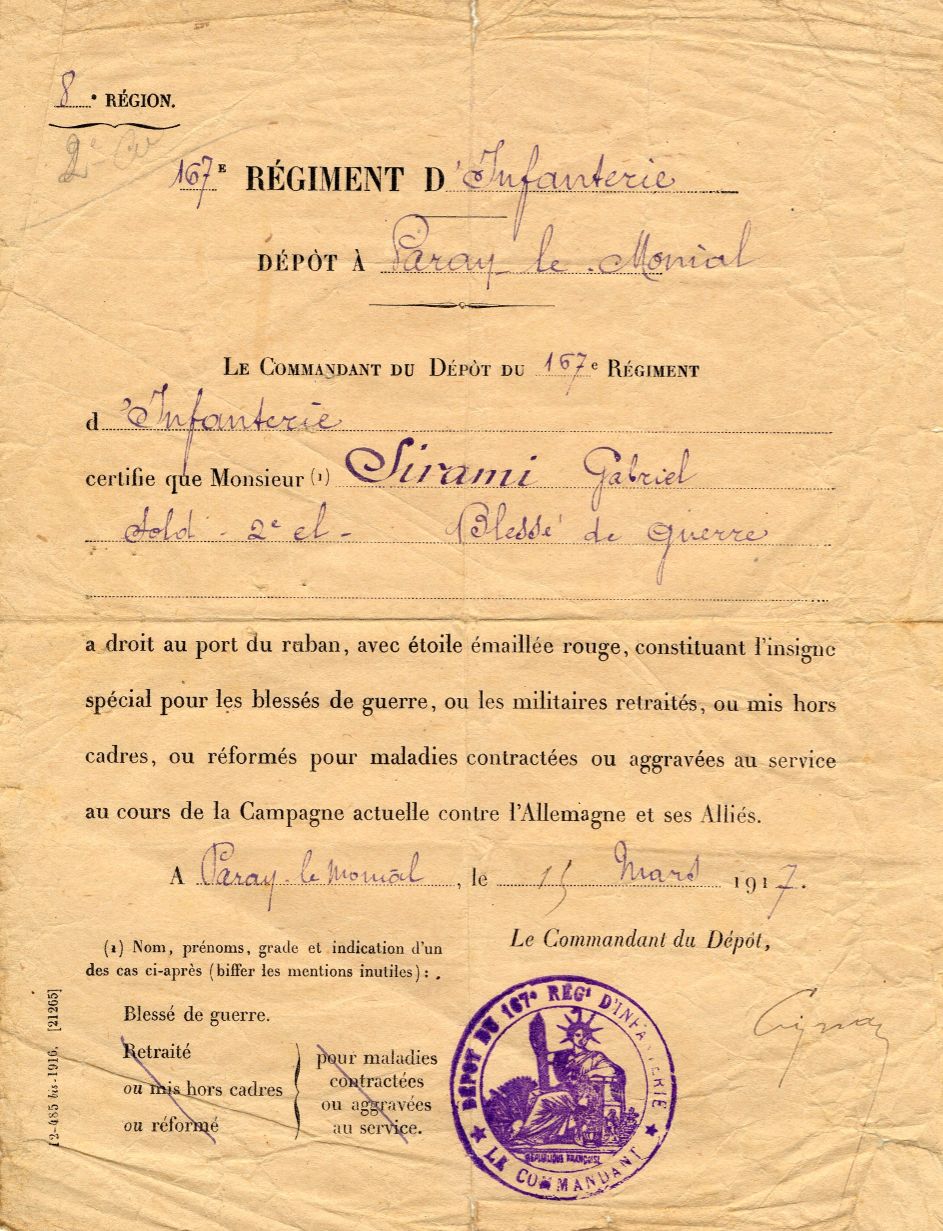 8e RÉGION.
2e
167E RÉGIMENT D'Infanterie
DÉPÔT À Paray-le-Monial
LE COMMANDANT DU DÉPÔT DU 167e RÉGIMENT
d'Infanterie
certifie que Monsieur (1) Sirami Gabriel
Sold - 2e cl - Blessé de guerre
a droit au port du ruban, avec étoile émaillée rouge, constituant l'insigne
spécial pour les blessés de guerre, ou les militaires retraités, ou mis hors
cadres, ou réformés pour maladies contractées ou aggravées au service
au cours de la Campagne actuelle contre l'Allemagne et ses Alliés.
A Paray-le-Monial, le 15 Mars 1917.
Le Commandant du Dépôt,
(1) Nom, prénoms, grade et indication d'un
des cas ci-après (biffer les mentions inutiles) :
Blessé de guerre.
Retraité
ou mis hors cadres
ou réformé
pour maladies
contractées
ou aggravées
au service.
12-485 bis-1916. [21265]
DÉPÔT DU 167e RÉGt D'INFANTERIE
RÉPUBLIQUE FRANÇAISE
★ LE COMMANDANT ★